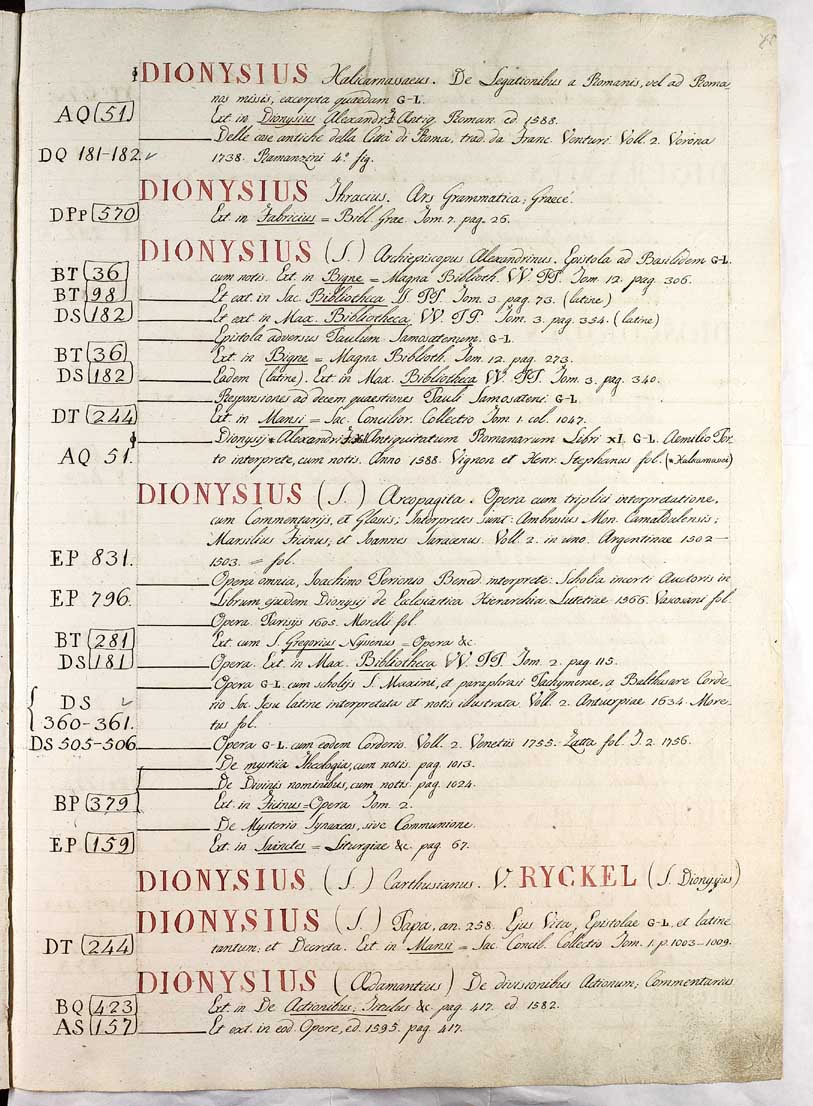 85
DIONYSIUS Halicarnassaeus. De Legationibus a Romanis, vel ad Roma
nos missis, excerpta quaedam G-L.
AQ 51 Ext. in Dionysius Alexandr. Antiq. Roman. ed 1588.
Delle cose antiche della Città di Roma, trad. da Franc. Venturi. Voll. 2. Verona
DQ 181-182. 1738. Ramanzini 4.º fig.
DIONYSIUS Thracius. Ars Grammatica; Graecé.
DPp 570 Ext. in Fabricius = Bibl. Grae. Tom. 7. pag. 26.
DIONYSIUS (S.) Archiepiscopus Alexandrinus. Epistola ad Basilidem G-L.
BT 36 cum notis. Ext. in Bigne = Magna Biblioth. VV. PP. Tom. 12. pag. 306.
BT 98 Et ext. in Sac. Bibliotheca SS. PP. Tom. 3. pag. 73. (latine)
DS 182 Et ext in Max. Bibliotheca VV. PP. Tom. 3. pag. 354. (latine)
Epistola adversus Paulum Samosatenum. G-L.
BT 36 Ext. in Bigne = Magna Biblioth. Tom. 12. pag. 273.
DS 182 Eadem (latine). Ext. in Max. Bibliotheca VV. PP. Tom. 3. pag. 340.
Responsiones ad decem quaestiones Pauli Samosateni G-L.
DT 244 Ext. in Mansi = Sac. Concilior. Collectio Tom 1. col. 1047.
Dionysij * Alexandri Antiquitatum Romanarum Libri XI. G-L. Aemilio Por
AQ 51. to interprete, cum notis. Anno 1588. Vignon et Henr. Stephanus fol. (* Halicarnassei)
DIONYSIUS (S.) Areopagita. Opera cum triplici interpretatione,
cum Commentarijs, et Glosis; Interpretes sunt: Ambrosius Mon. Camaldulensis;
Marsilius Ficinus; et Joannes Saracenus. Voll. 2. in uno. Argentinae 1502-
EP 831. 1503. = fol.
Opera omnia, Joachimo Perionio Bened. interprete. Scholia incerti Auctoris in
EP 796. Librum ejusdem Dionysij de Ecclesiastica Hierarchia. Lutetiae 1566. Vascosani fol.
Opera. Parisijs 1605. Morelli fol.
BT 281 Ext. cum S. Gregorius Nyssenus = Opera &c.
DS 181 Opera. Ext. in Max. Bibliotheca VV. PP. Tom. 2. pag 115.
Opera G-L. cum scholijs S. Maximi, et paraphrasi Pachymerae, a Balthasare Corde
DS rio Soc. Jesu latine interpretata et notis illustrata. Voll. 2. Antuerpiae 1634. More
360-361. tus fol.
DS 505-506 Opera G-L. cum eodem Corderio. Voll. 2. Venetiis 1755. Zatta fol. T. 2. 1756.
De mystica Theologia, cum notis. pag. 1013.
De Divinis nominibus, cum notis. pag. 1024.
BP 379 Ext. in Ficinus = Opera Tom. 2.
De Mysterio Synaxeos, sive Communione.
EP 159 Ext. in Sainctes = Liturgiae &c. pag. 67.
DIONYSIUS (S.) Carthusianus. V. RYCKEL (S. Dionysius)
DIONYSIUS (S.) Papa, an. 258. Ejus Vita, Epistolae G-L, et latine
DT 244 tantum; et Decreta. Ext. in Mansi = Sac. Concil. Collectio Tom. 1. p. 1003-1009.
DIONYSIUS (Adamantius) De divisionibus Actionum; Commentarius
BQ 423 Ext. in De Actionibus; Titulus &c. pag. 417. ed 1582.
AS 157 Et ext. in eod. Opere, ed. 1595. pag. 417.